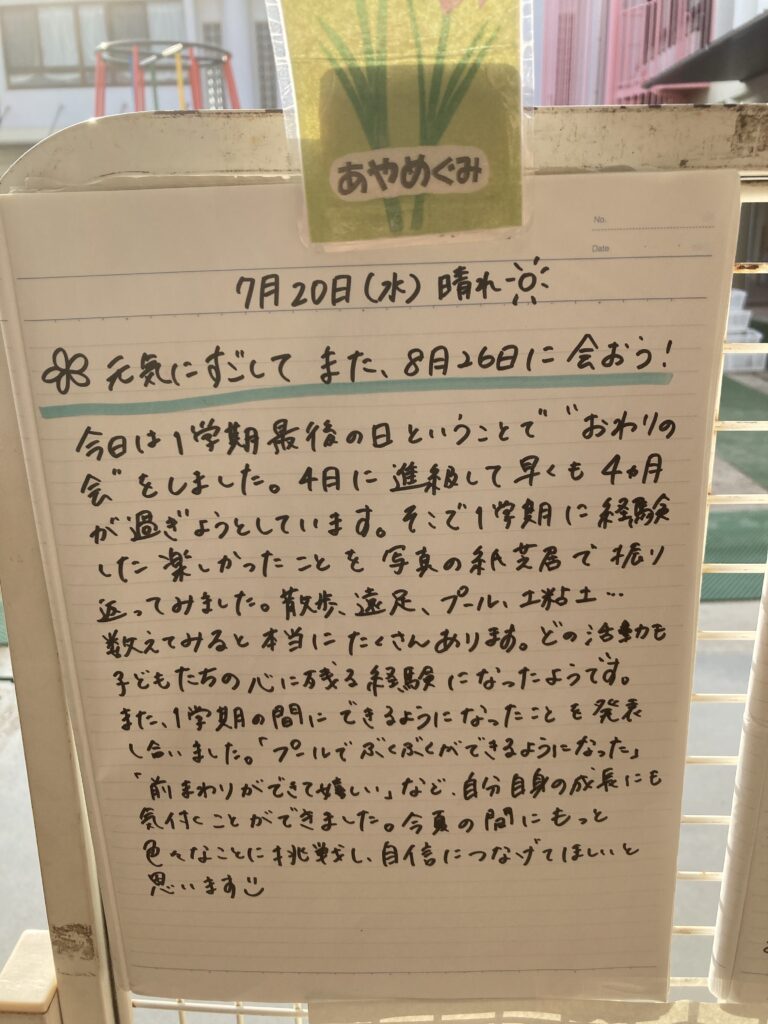 あやめぐみ
No.
Date
7月20日(水) 晴れ
元気にすごして また、8月26日に 会おう!
今日は1学期最後の日ということで"おわりの
会"をしました。4月に進級して早くも4ヵ月
が過ぎようとしています。そこで1学期に経験
した楽しかったことを写真の紙芝居で振り
返ってみました。散歩、遠足、プール、土粘土…
数えてみると本当にたくさんあります。どの活動も
子どもたちの心に残る経験になったようです。
また、1学期の間にできるようになったことを発表
し合いました。「プールでぶくぶくができるようになった」
「前まわりができて嬉しい」など、自分自身の成長にも
気付くことができました。今夏の間にもっと
色々なことに挑戦し、自信につなげてほしいと
思います